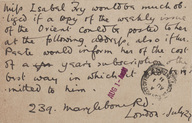 Miss Isabel Ivy would be much ob-
liged if a copy of the weekly issue
of the Orient could be posted to her
at the following address, also if Mrs
Parle would inform her of the cost
of a year subscription & the
best way in which it
mitted to him.
239. Marylebone Rd.
London - July